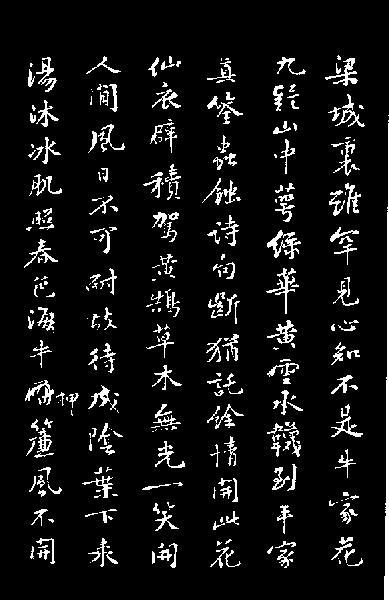 梁城裏雖罕見心知不是牛家花
九疑山中萼綠華黃雲承韈到羊家
真筌蟲蝕詩句斷猶託餘情開此花
仙衣襞積駕黃鵠草木無光一笑開
人間風日不可耐故待成陰葉下来
湯沐冰肌照春色海牛押簾風不開